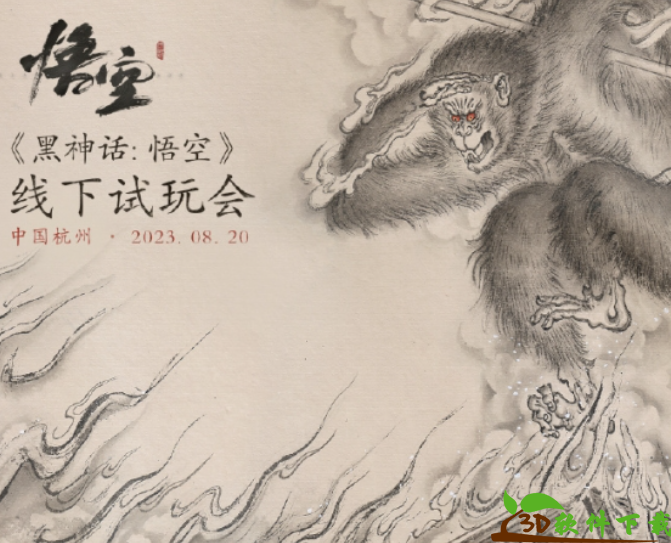 悟空
《黑神话：悟空》
线下试玩会
中国杭州 · 2023. 08. 20
3D软件下载